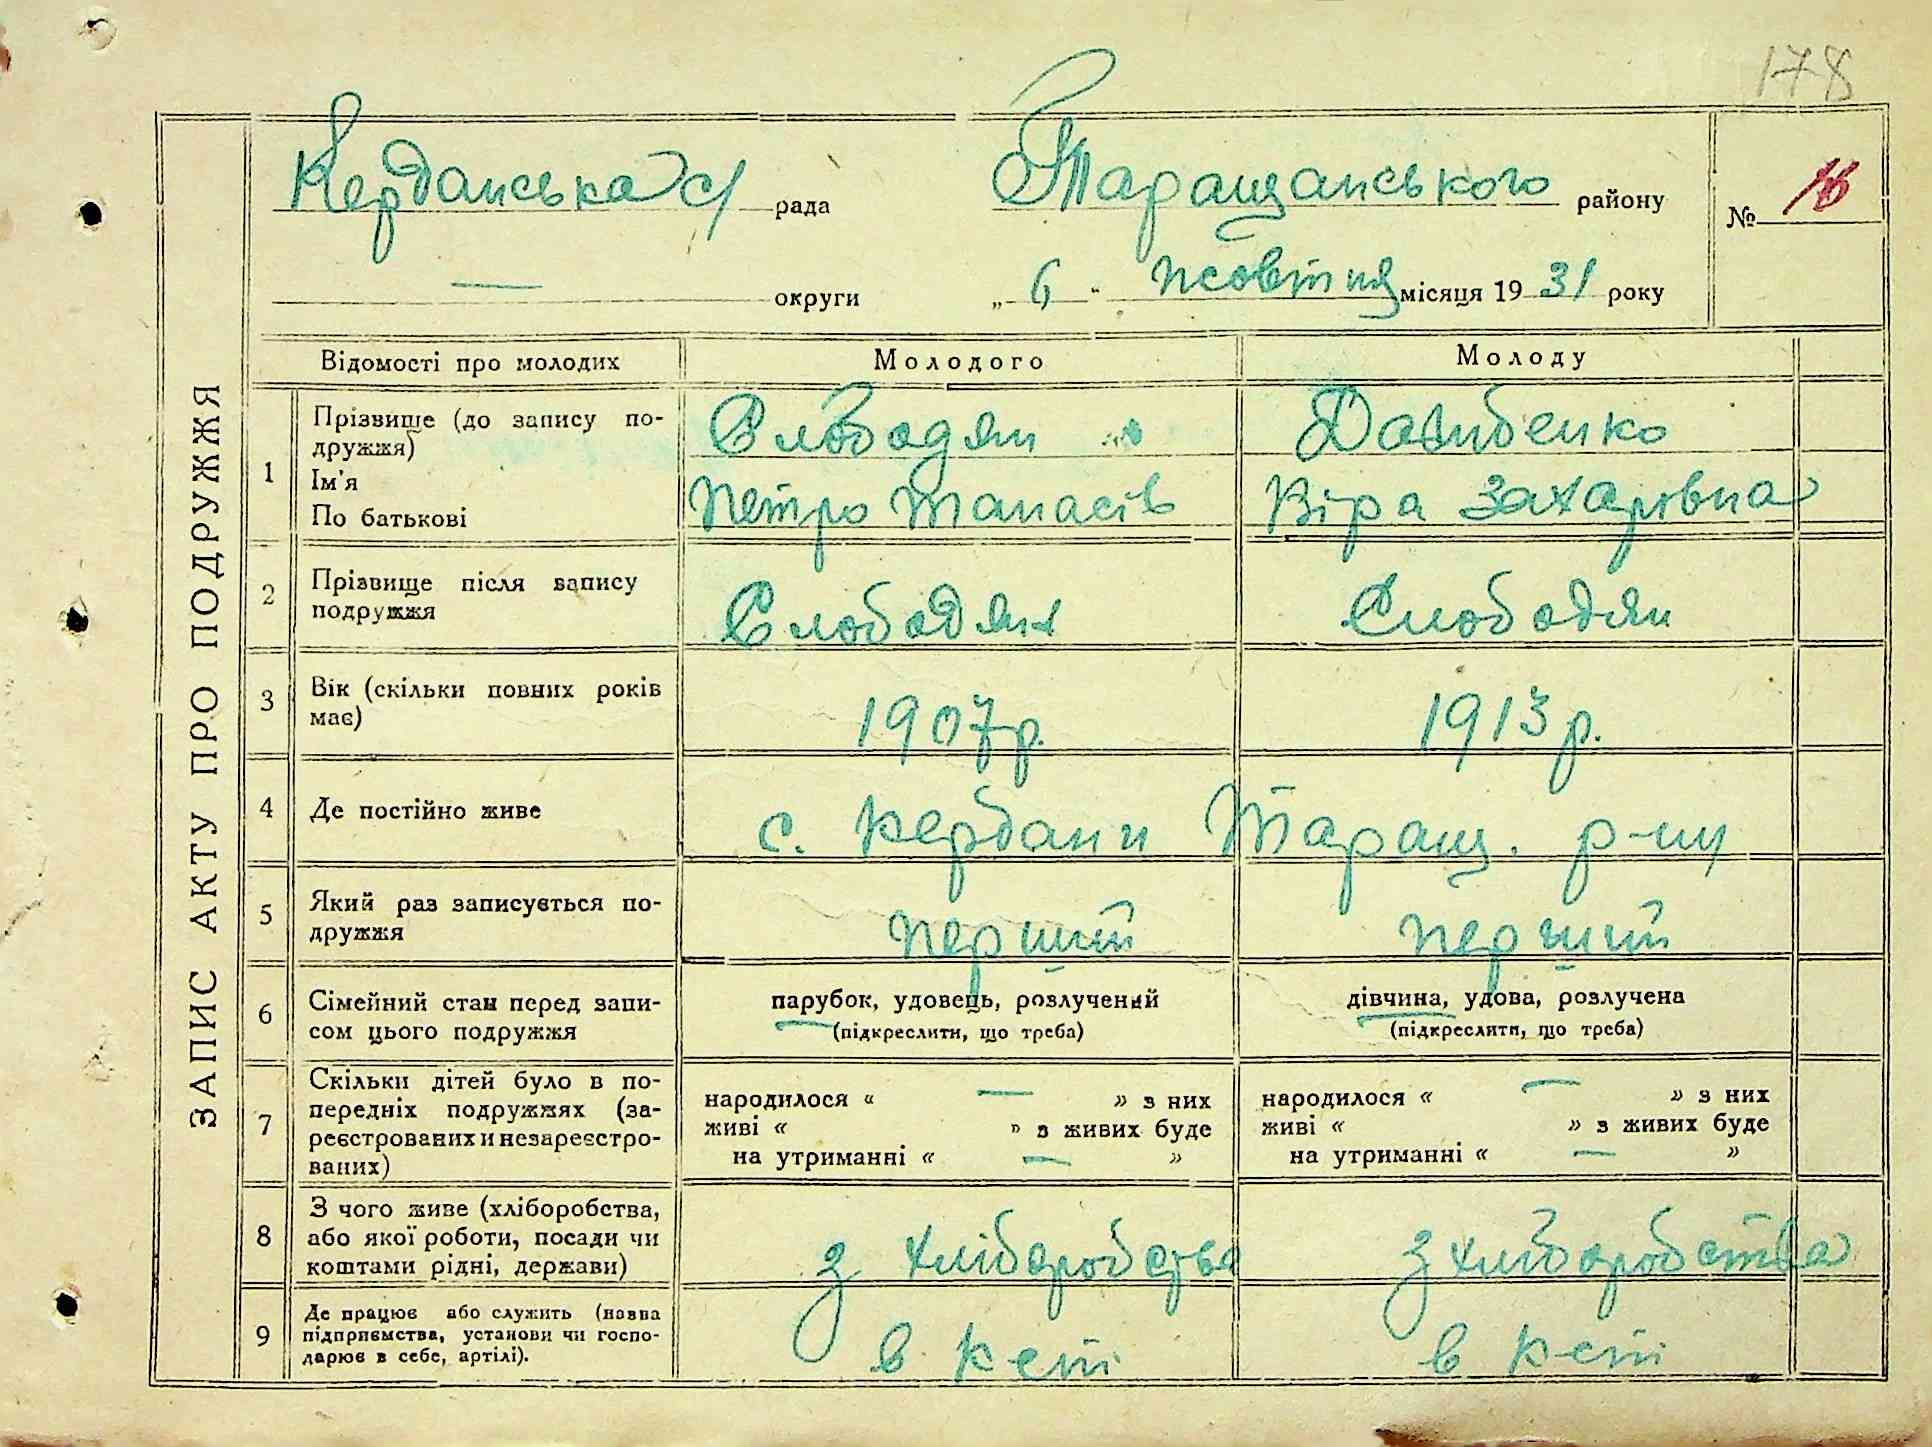 178
Керданська с/рада Таращанського району № 16
— округи „ 6 " жовтня місяця 1931 року
ЗАПИС АКТУ ПРО ПОДРУЖЖЯ
Відомості про молодих Молодого Молоду
1 Прізвище (до запису по-
дружжя) Слободян Давиденко
Ім'я
По батькові Петро Танасів Віра Захарівна
2 Прізвище після запису
подружжя Слободян Слободян
3 Вік (скільки повних років
має) 1907р. 1913р.
4 Де постійно живе с. Кердани Таращ. р-ну
5 Який раз записується по-
дружжя перший перший
6 Сімейний стан перед запи-
сом цього подружжя
парубок, удовець, розлучений
(підкреслити, що треба)
дівчина, удова, розлучена
(підкреслити, що треба)
7 Скільки дітей було в по-
передніх подружжях (за-
реєстрованих и незареєстро-
ваних)
народилося « — » з них
живі « » з живих буде
на утриманні « — »
народилося « — » з них
живі « » з живих буде
на утриманні « — »
8 З чого живе (хліборобства,
або якої роботи, посади чи
коштами рідні, держави)
з хліборобства з хліборобства
9 Де працює або служить (назва
підприємства, установи чи госпо-
дарює в себе, артілі).
в кст в кст